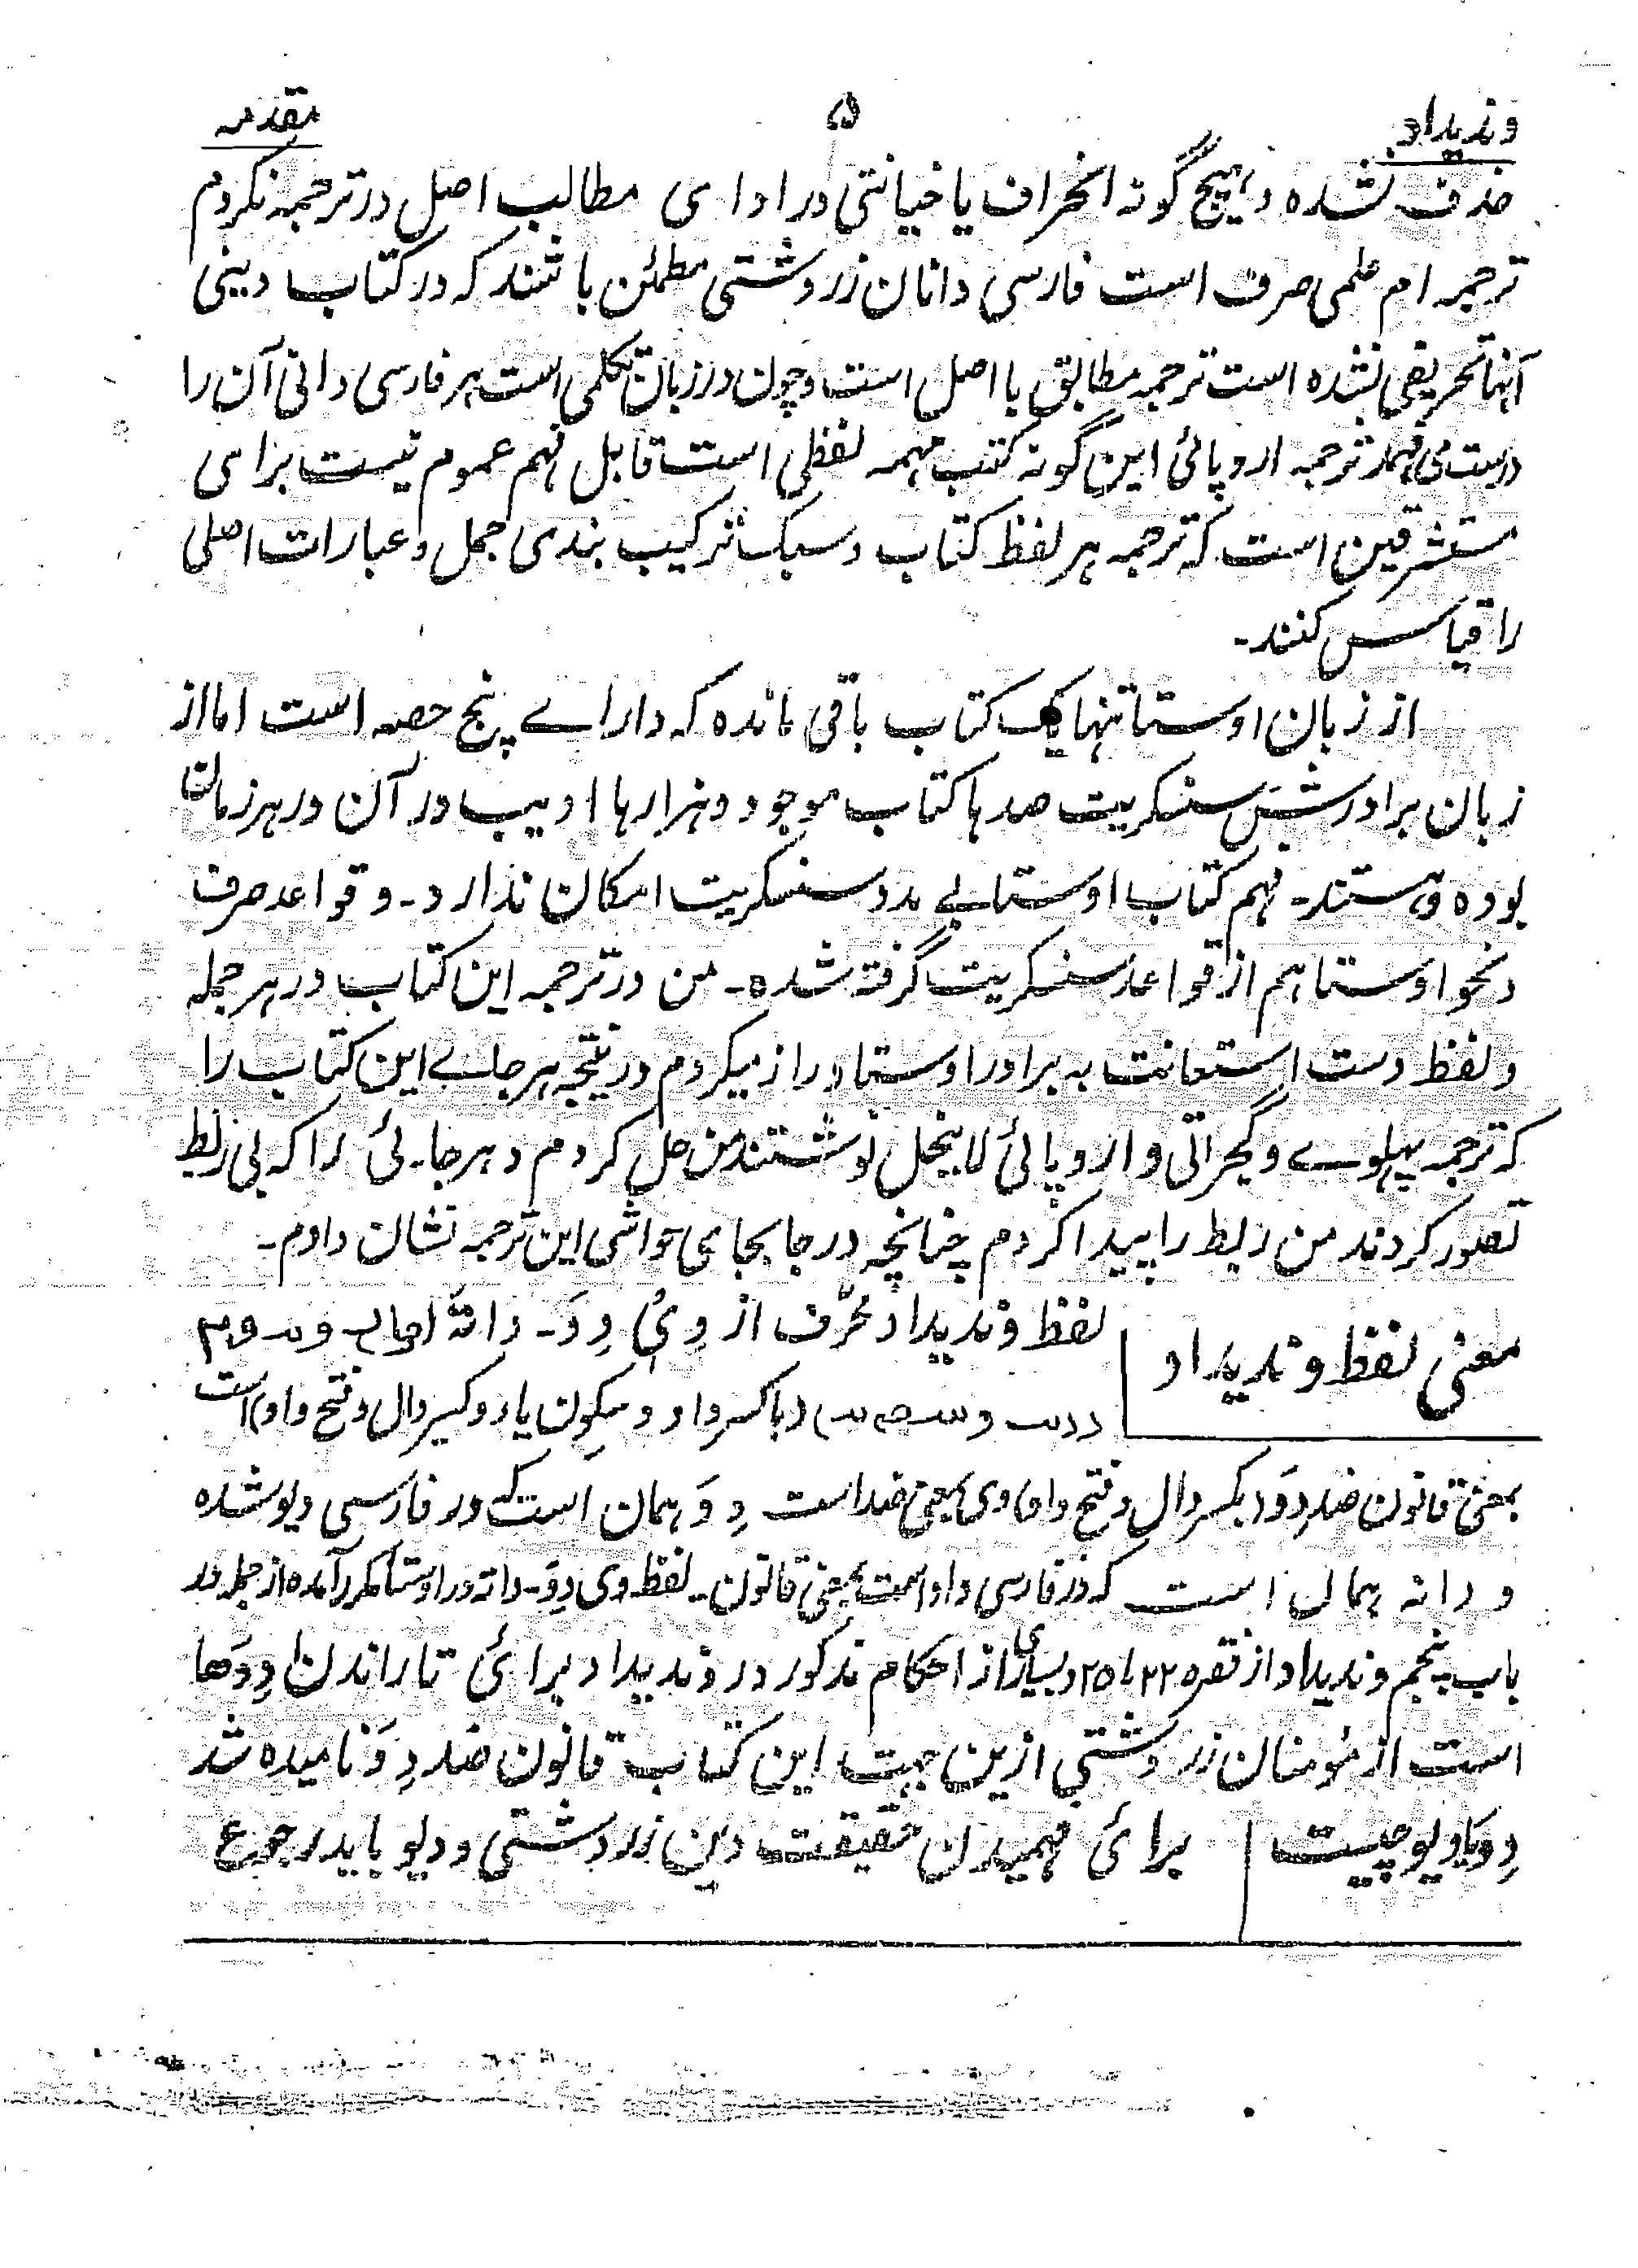 وندیداد ۵ مقدمه
حذف نشده و هیچ گونه انحراف یا خیانتی در ادای مطالب اصل در ترجمه نکردم
ترجمه ام علمی صرف است فارسی دانان زردوشتی مطمئن باشند که در کتاب دینی
آنها تحریفی نشده است ترجمه مطابق با اصل است و چون در زبان تکلمی است هر فارسی دانی آن را
درست می فهمد ترجمه اروپائی این گونه کتب مهمه لفظی است قابل فهم عموم نیست برای
مستشرقین است که ترجمه هر لفظ کتاب و سبک ترکیب بندی جمل و عبارات اصلی
را قیاس کنند۔
از زبان اوستا تنها یک کتاب باقی مانده که دارای پنج حصه است اما از
زبان برادرش سنسکریت صدها کتاب موجود و هزارها ادیب در آن در هر زمان
بوده و هستند۔ فهم کتاب اوستا بی مدد سنسکریت امکان ندارد۔ و قواعد صرف
و نحو اوستا هم از قواعد سنسکریت گرفته شده۔ من در ترجمه این کتاب در هر جمله
و لفظ دست استعانت به برادر اوستا دراز میکردم در نتیجه هر جائے این کتاب را
که ترجمه پهلوے و گجراتی و اروپائی لاینحل نوشتند من حل کردم و هر جائی را که بی ربط
تصور کردند من ربط را پیدا کردم چنانچه در جابجای حواشی این ترجمه نشان دادم۔
معنی لفظ وندیداد
لفظ وندیداد محرّف از وِیْ دِوَ۔ داتَه
(باکسر واو و سکون یا و کسر دال و فتح واو) است
بمعنی قانون ضد دِوَ (بکسر دال و فتح واو) وی بمعنی ضد است دِوَ همان است که در فارسی دیو شده
و داته همان است که در فارسی داد است بمعنی قانون۔ لفظ وی دِوَ۔ داته در اوستا مکرر آمده از جمله در
باب پنجم وندیداد از فقره ۲۲ تا ۲۵ و بسیاری از احکام مذکور در وندیداد برائی تاراندن دِوَها
است از مؤمنان زردوشتی ازین جهت این کتاب قانون ضد دِوَ نامیده شد
دِوَ یا دیو چیست
برائی فهمیدن حقیقت دین زردشتی و دیو باید رجوع